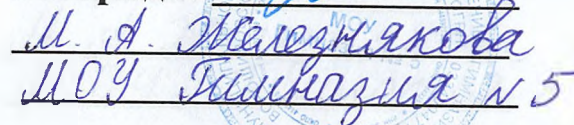 М. А. Железнякова
МОУ Гимназия №5